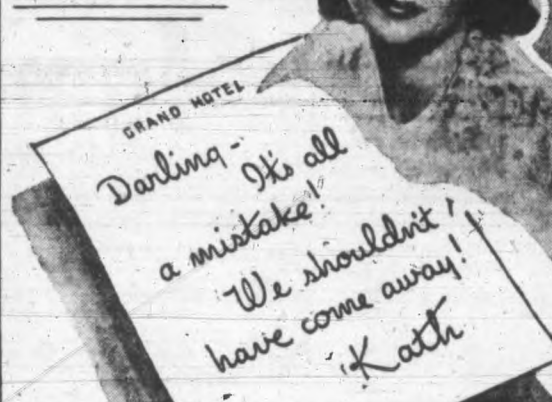 GRAND HOTEL
Darling-
It's all
a mistake!
We shouldn't
have come away!
Kath